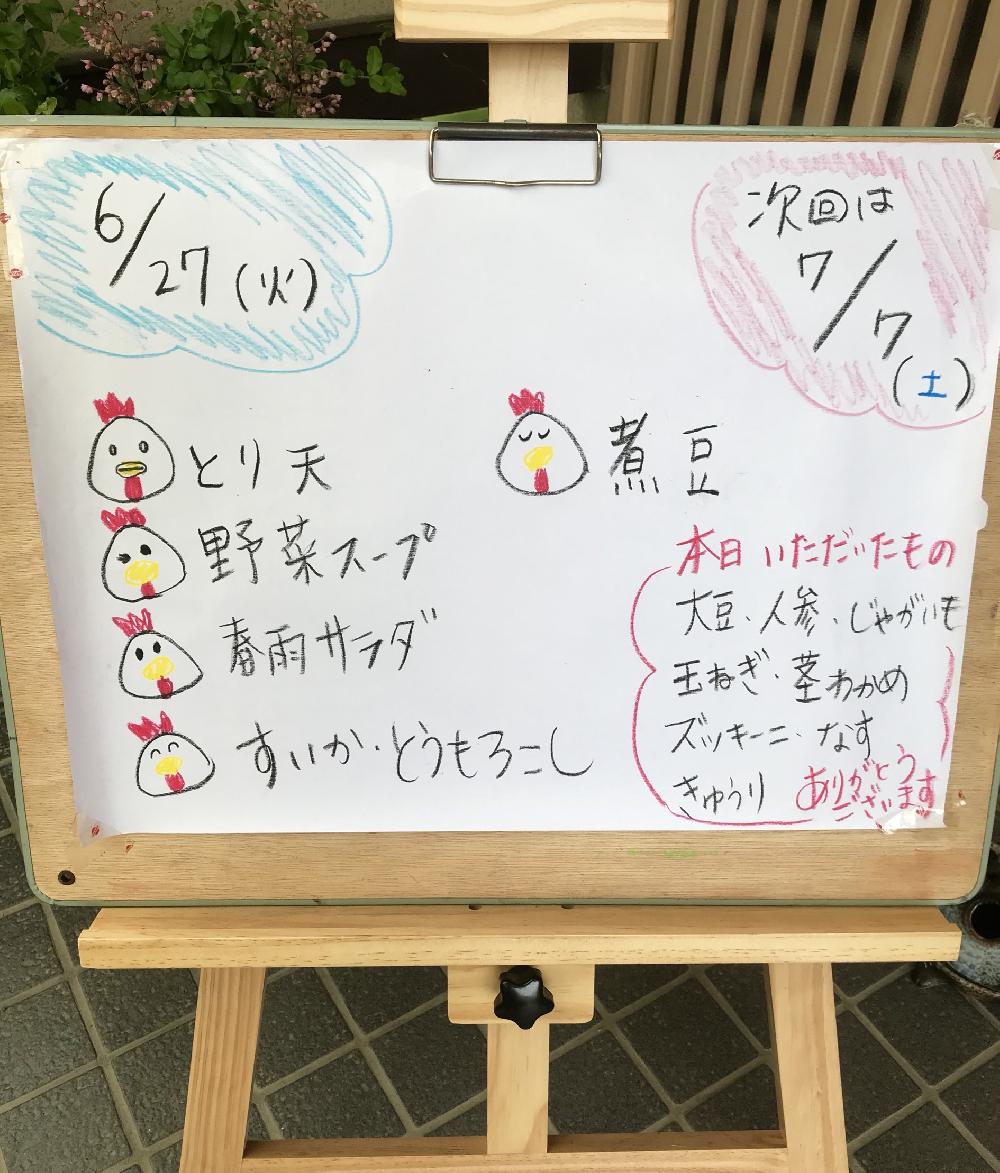 6/27(火)
次回は
7/7
(土)
とり天
野菜スープ
春雨サラダ
すいか・とうもろこし
煮豆
本日いただいたもの
大豆・人参・じゃがいも
玉ねぎ・茎わかめ
ズッキーニ・なす
きゅうり
ありがとう
ございます